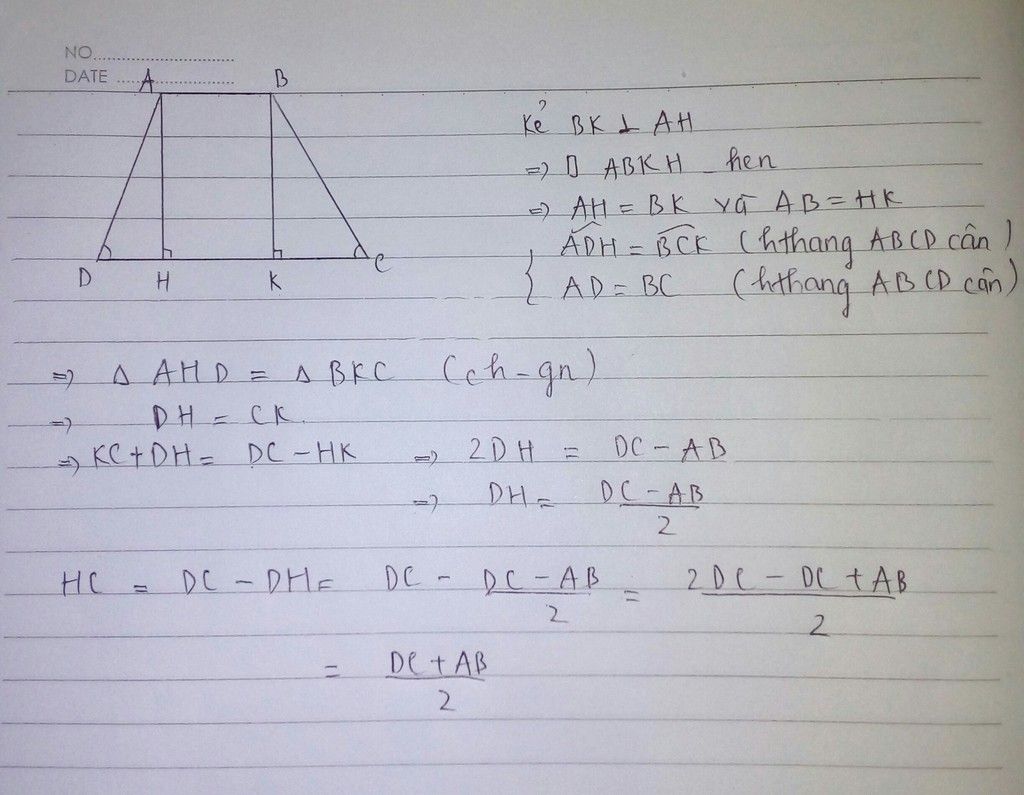 NO
DATE
A B
D H K C
Kẻ BK ⊥ AH
=> ▯ ABKH hcn
=> AH = BK và AB = HK
{ \widehat{ADH} = \widehat{BCK} (hthang ABCD cân)
AD = BC (hthang ABCD cân)
=> Δ AHD = Δ BKC (ch-gn)
=> DH = CK.
=> KC + DH = DC - HK => 2DH = DC - AB
=> DH = \frac{DC - AB}{2}
HC = DC - DH = DC - \frac{DC - AB}{2} = \frac{2DC - DC + AB}{2}
= \frac{DC + AB}{2}